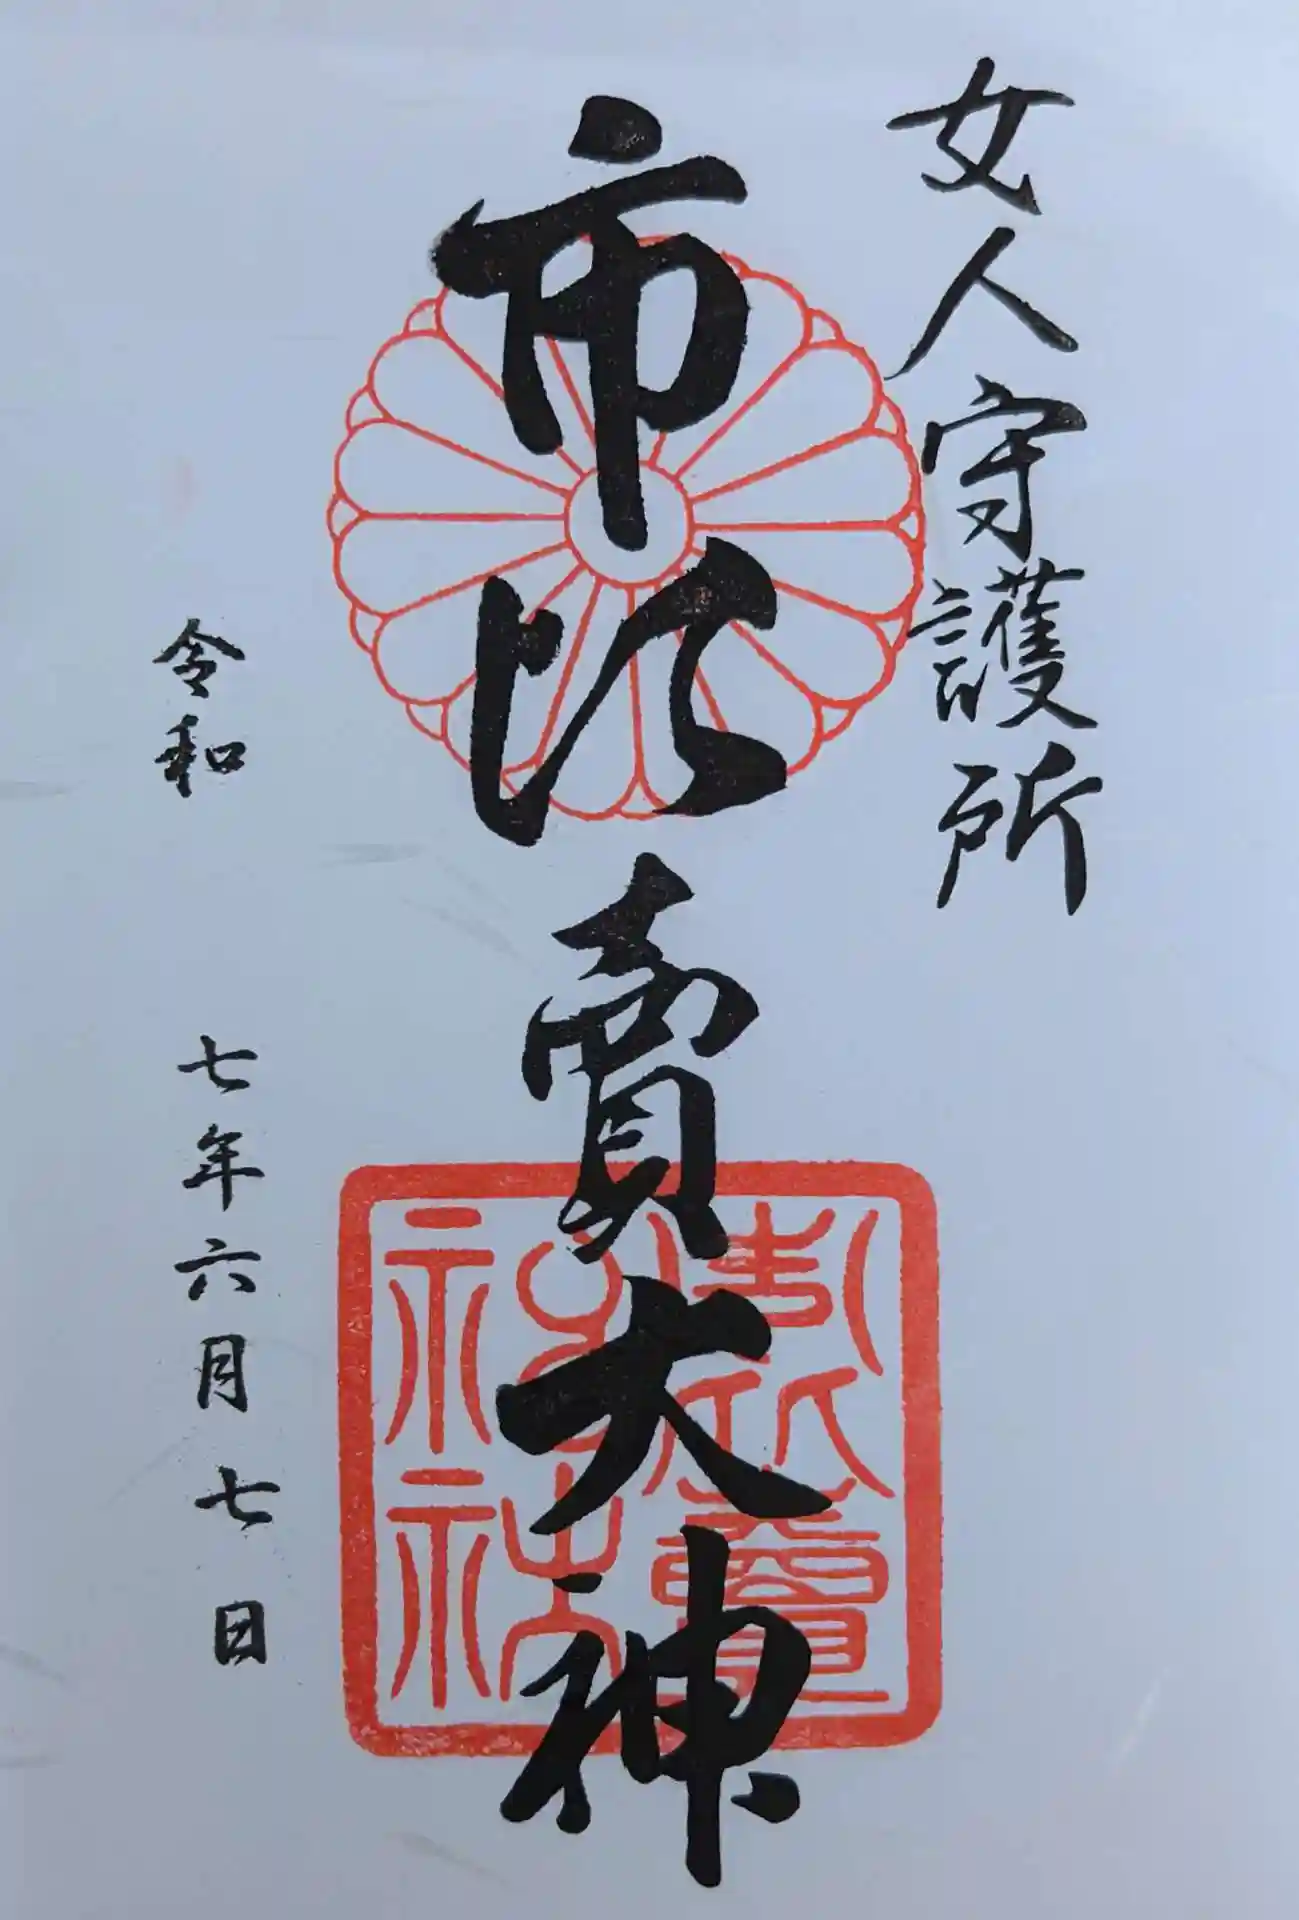 女人守護所
市比賣大神
市比賣神社
令和 七年六月七日